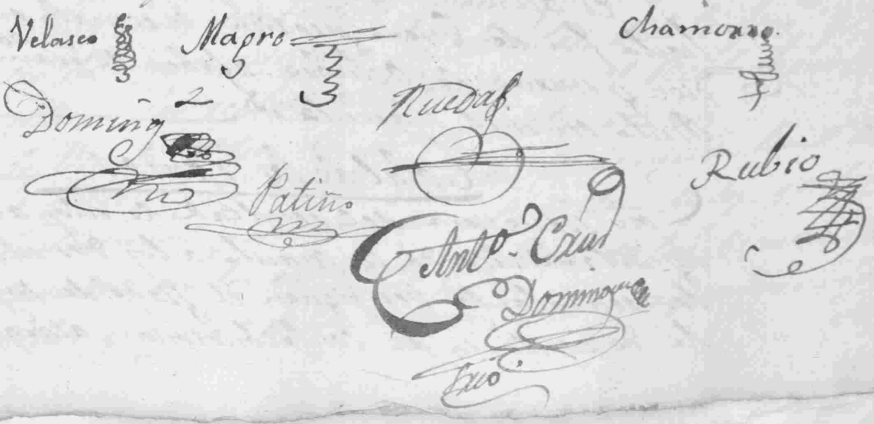 Velasco Magro Chamorro
Doming^z Ruedas
Patiño Rubio
Ant.º Cruz
Dominguez
Srio